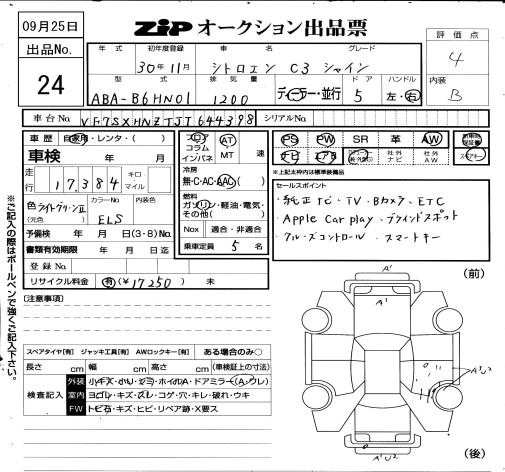 09月25日
出品No.
24
ZIP オークション出品票
評価点
4
内装
B
年式 初年度登録 車名 グレード
30年11月 シトロエン C3 シャイン
型式 排気量 ドア ハンドル
ABA-B6HN01 1200 ディーラー・並行 5 左・右
車台No. VF7SXHNZTJT644398 シリアルNo.
車歴 自家用・レンタ・( )
車検 年 月
走行 17,384 キロ・マイル
色 ライトグリーンⅡ (元色) カラーNo. ELS 内装色
予備検 年 月 日(3・8)No.
書類有効期限 年 月 日迄
登録No.
リサイクル料金 有(¥17250)無
フロア コラム インパネ AT MT 速
冷房
無・C・AC・AAC( )
燃料
ガソリン・軽油・電気・その他( )
Nox 適合・非適合
乗車定員 5 名
PS PW SR 革 AW
ナビ エアB 社外ナビ 社外AW
スペアキー
※上記太枠内は標準装備品
セールスポイント
・純正ナビ・TV・Bカメラ・ETC
・Apple Car play・ブラインドスポット
・クルーズコントロール ・スマートキー
(注意事項)
スペアタイヤ[有] ジャッキ工具[有] AWロックキー[有] ある場合のみ○
長さ cm 幅 cm 高さ cm (車検証上の寸法)
検査記入
外装 小キズ・小U・ホイルA・ドアミラー(A・ワレ)
室内 ヨゴレ・キズ・スレ・コゲ・穴・キレ・破れ・ウキ
FW トビ石・キズ・ヒビ・リペア跡・X要ス
※ご記入の際はボールペンで強くご記入下さい。
(前)
A¹
A¹
A¹U²
A¹U²
(後)